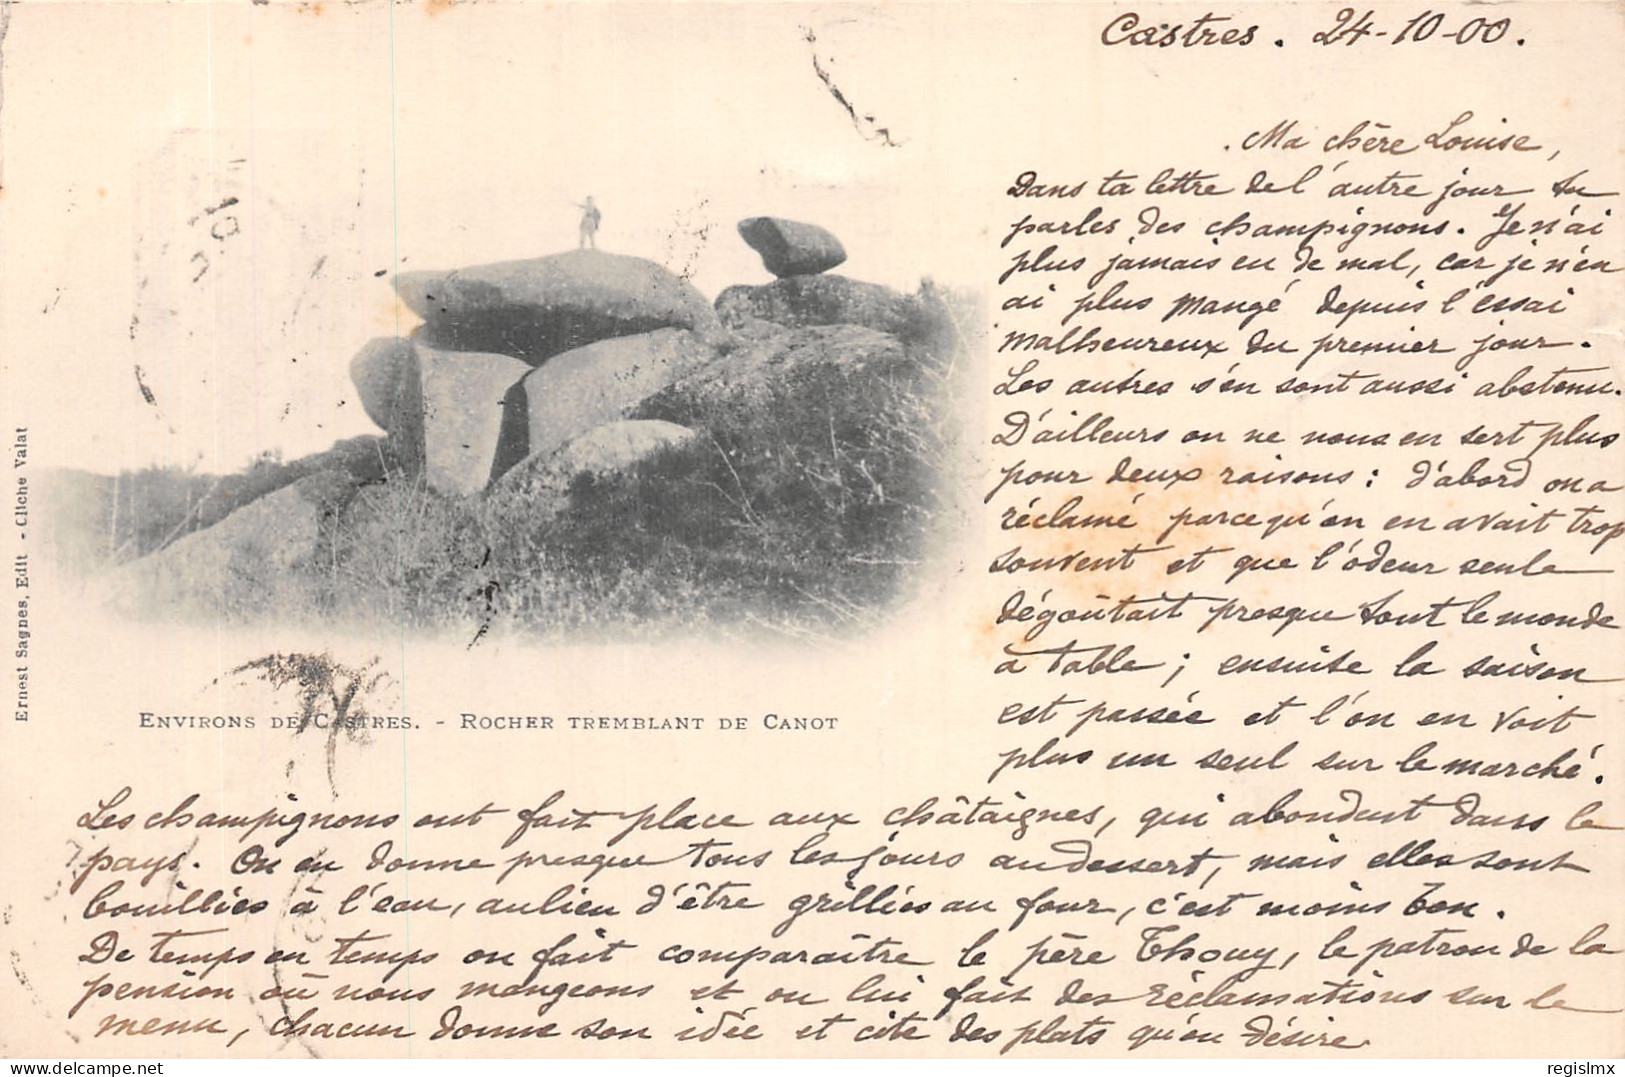 Castres. 24-10-00.
Ma chère Louise,
Dans ta lettre de l'autre jour tu
parles des champignons. Je n'ai
plus jamais eu de mal, car je n'en
ai plus mangé depuis l'essai
malheureux du premier jour.
Les autres s'en sont aussi abstenu.
D'ailleurs on ne nous en sert plus
pour deux raisons : d'abord on a
réclamé parce qu'on en avait trop
souvent et que l'odeur seule
dégoûtait presque tout le monde
à table ; ensuite la saison
est passée et l'on en voit
plus un seul sur le marché.
Les champignons ont fait place aux châtaignes, qui abondent dans le
pays. On en donne presque tous les jours au dessert, mais elles sont
bouillies à l'eau, au lieu d'être grillées au four, c'est moins bon.
De temps en temps on fait comparaître le père Thouy, le patron de la
pension où nous mangeons et on lui fait des réclamations sur le
menu, chacun donne son idée et cite des plats qu'on désire.
Environs de Castres. - Rocher tremblant de Canot
Ernest Sagnes, Edit - Cliche Valat
regislmx